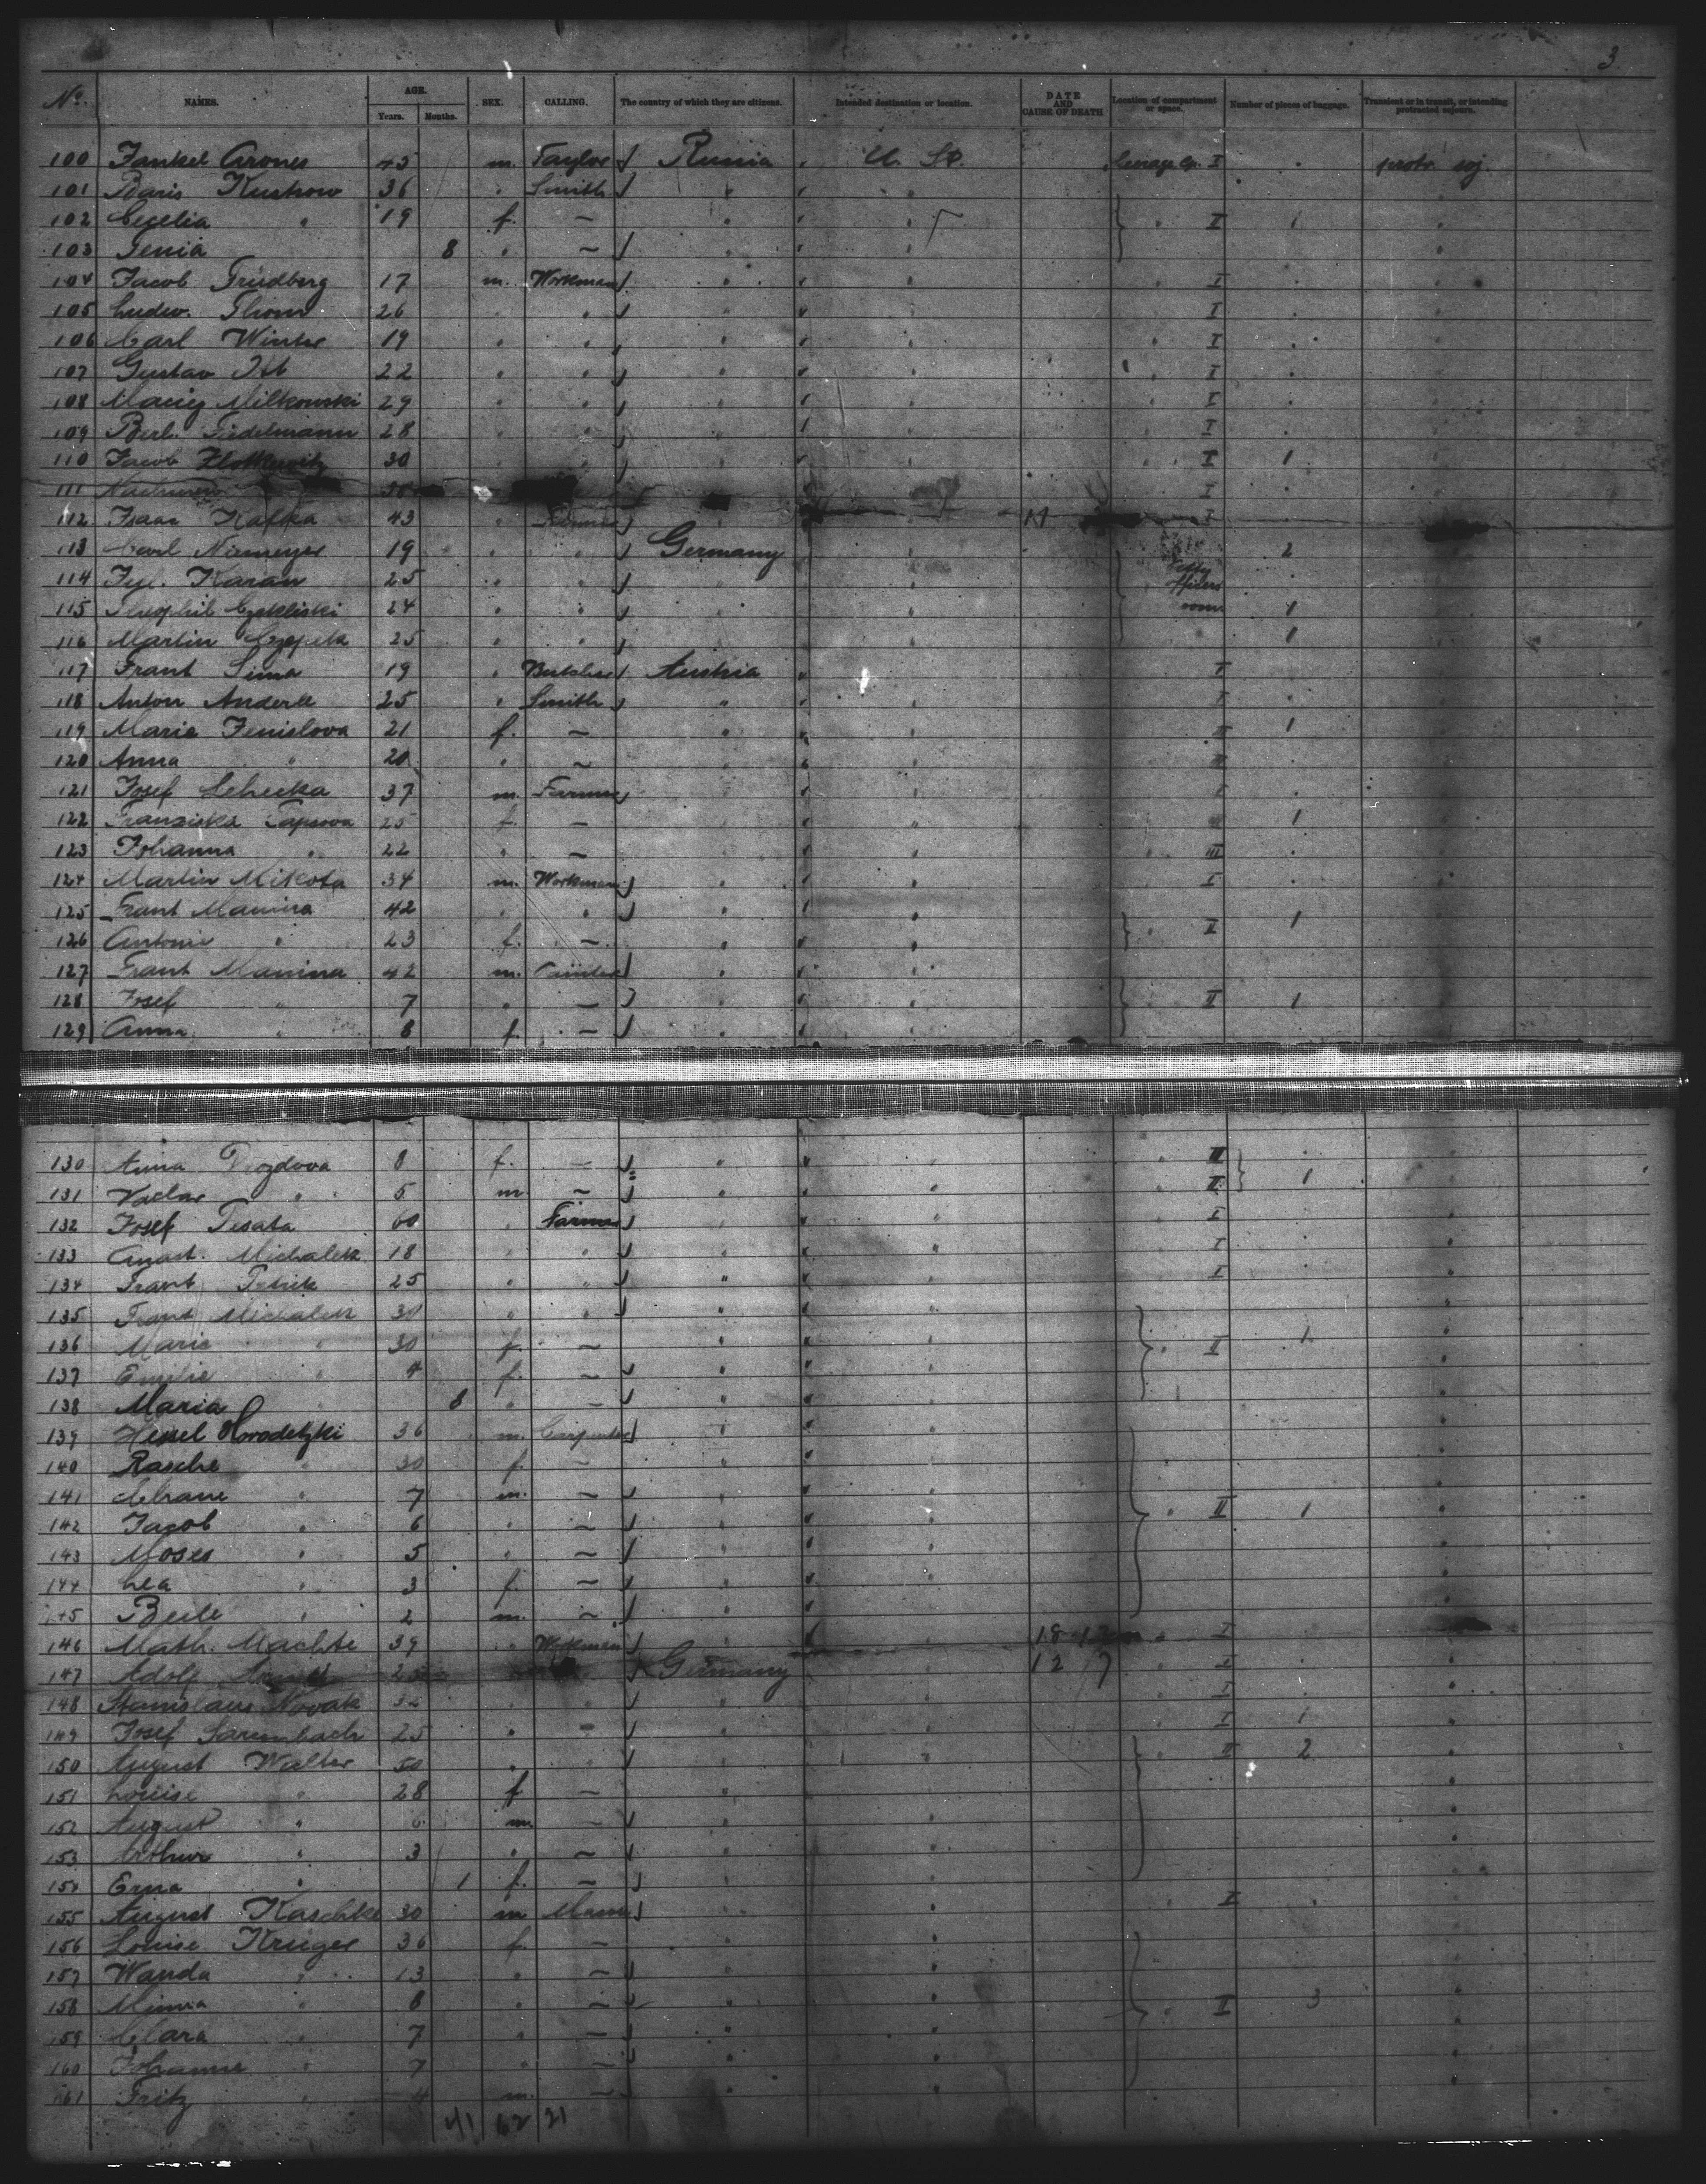 3
No. NAMES. AGE. Years. Months. SEX. CALLING. The country of which they are citizens. Intended destination or location. DATE AND CAUSE OF DEATH Location of compartment or space. Number of pieces of baggage. Transient or in transit, or intending protracted sojourn.
100 Jankel Arones 45 m. Taylor Russia U. St. I protr. soj.
101 Boris Kushow 36 " Smith " "
102 Cecelia " 19 f. — " " II 1
103 Genia 8 " — " "
104 Jacob Friedberg 17 m. Workman " " I
105 Ludw. Thom 26 " " " " I
106 Carl Winter 19 " " " " I
107 Gustav 22 " " " " I
108 Maciej Milkowski 29 " " " " I
109 Berl. Fiedelmann 28 " " " " I
110 Jacob 30 " " " " I 1
111 I
112 Isaac Kafka 43 " " " I
113 Carl Niemeyer 19 " " Germany " 2
114 Karan 25 " " " "
115 24 " " " " room 1
116 Martin 25 " " " " 1
117 Frant Sima 19 " Butcher Austria " I
118 Anton Anderle 25 " Smith " " I
119 Marie Jenislova 21 f. — " " II 1
120 Anna " 20 " — " " II
121 Josef Lehecka 37 m. Farmer " " I
122 Franziska 25 f. — " " 1
123 Johanna " 22 " — " " III
124 Martin Mikota 34 m. Workman " " I
125 Frant Manina 42 " " " " 1
126 Antonie " 23 f. — " " II
127 Frant Manina 42 m. " "
128 Josef " 7 " — " " II 1
129 Anna " 8 f. — " "
130 Anna Drozdova 8 f. — " " II
131 Vaclav " 5 m — " " II 1
132 Josef Tesata 60 " Farmer " " I
133 Anast. Michalek 18 " " " " I
134 Frant Petrik 25 " " " " I
135 Frant Michalek 30 " " " "
136 Marie " 30 f. — " " II 1
137 Emilie " 4 f. — " "
138 Maria 8 " — " "
139 Hessel Horodetzki 36 m. Carpenter " "
140 Rasche " 30 f. — " "
141 Chane " 7 m. — " "
142 Jacob " 6 " — " " II 1
143 Moses " 5 " — " "
144 Lea " 3 f. — " "
145 Beile " 2 m. — " "
146 Math. Machte 39 " Workman " 18 I
147 Adolf Germany 12 I
148 Stanislaus Novak 32 " " " " I
149 Josef Sarembach 25 " " " " I 1
150 August Walter 50 " " " " II 2
151 Louise " 28 f — " "
152 August " 6 m. — " "
153 Arthur " 3 " — " "
154 Erna " 1 f. — " "
155 August Kaschke 30 m Mason " " I
156 Louise Kruger 36 f. — " "
157 Wanda " 13 " — " "
158 Minna " 8 " — " " I 3
159 Clara " 7 " — " "
160 Johanne " 7 " — " "
161 Fritz " 4 m. — " "
41 62 21